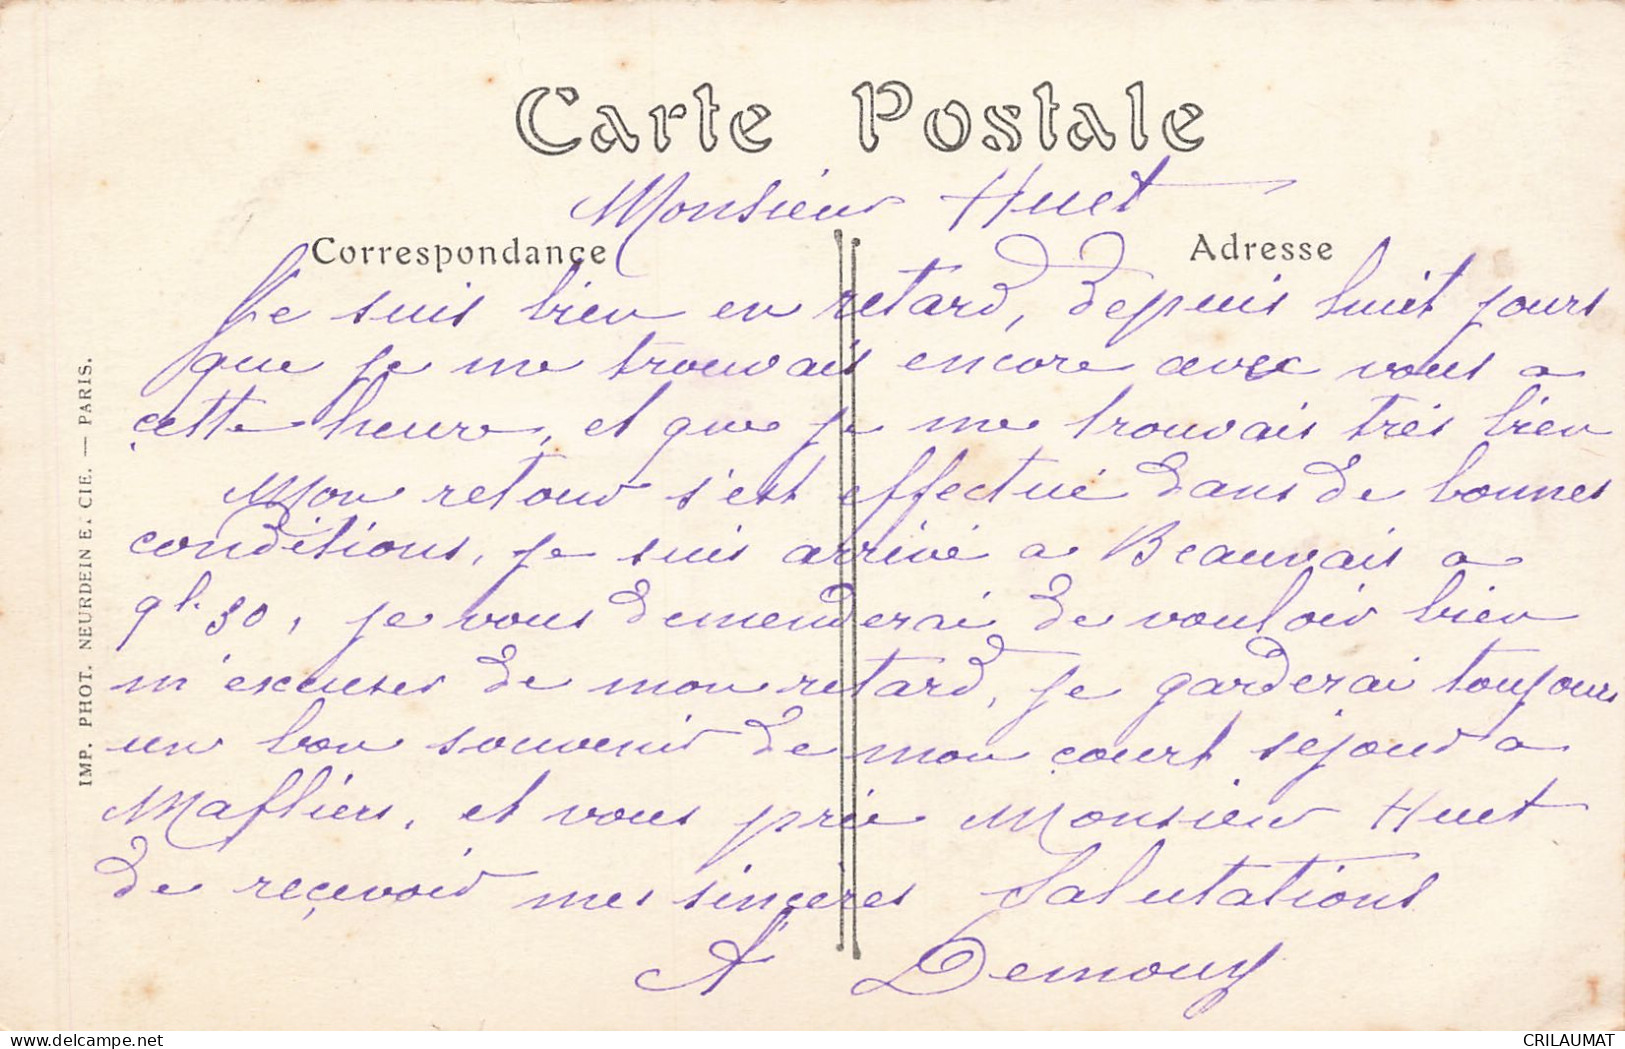 Carte Postale
Monsieur Huet
Correspondance
Adresse
Je suis bien en retard, depuis huit jours
que je me trouvais encore avec vous a
çette heure, et que je me trouvais très bien
Mon retour s'est effectué dans de bonnes
conditions, je suis arrivé a Beauvais a
9h.30, je vous demenderai de vouloir bien
m'excuser de mon retard, je garderai toujours
un bon souvenir de mon court séjour a
Mafliers, et vous prie Monsieur Huet
de reçevoir mes sinçères Salutations
A Demouy
IMP. PHOT. NEURDEIN E. CIE. — PARIS.
delcampe.net
CRILAUMAT